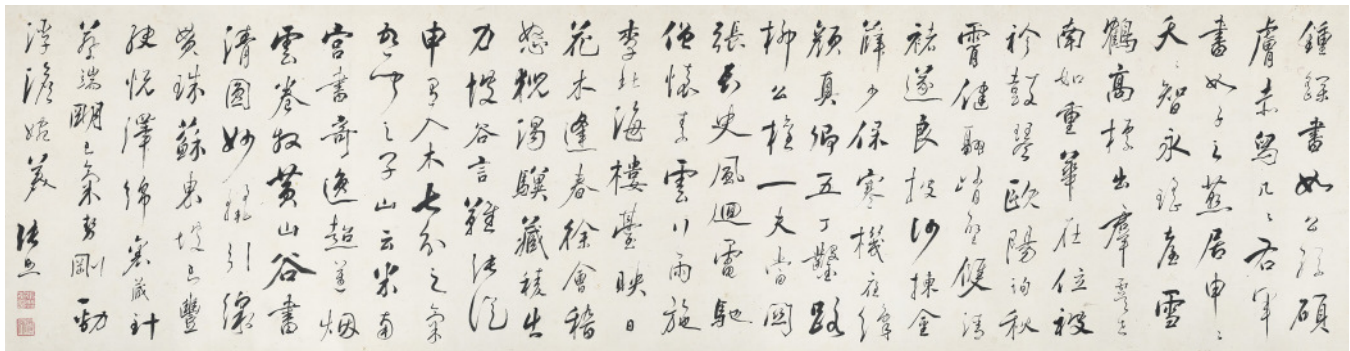 鍾繇書如公孫碩
膚赤舄几〻右軍
書如子之燕居申〻
夭〻智永瑤臺雪
鶴高標出羣虞世
南如重華在位被
袗鼓琴歐陽詢秋
霄健翮峭壑清
褚遂良披沙揀金
薛少保寒機在緯
顏真卿五丁鑿路
柳公權一夫當關
張長史風迴電馳
僧懷素雲行雨施
李北海樓臺映日
花木逢春徐會稽
怒猊渴驥藏稜出
力坡谷言難
申有入木七分之氣
之子山云米南
宮書奇逸超邁烟
雲卷黃山谷書
清圓妙麗引繩
貫珠蘇東坡書豐
腴悅澤綿裹藏針
蔡端明書氣勢剛勁
淳澹婉美 張照